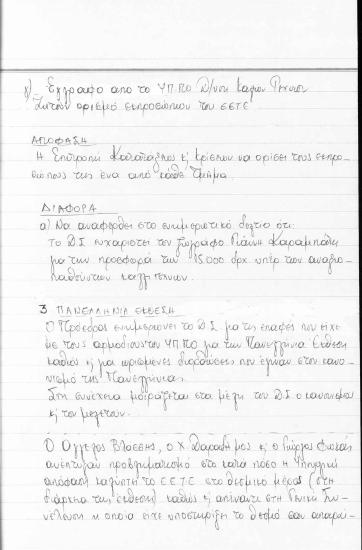 γ) Έγγραφο από το ΥΠ.ΠΟ Δ/νση Καλών Τεχνών
Ζητούν ορισμό εκπροσώπων του ΕΕΤΕ
ΑΠΟΦΑΣΗ
Η Επιτροπή Καλλιτεχνικής κ' Κρίσεων να ορίσει τους εκπρο-
σώπους της ένα από κάθε Τμήμα.
ΔΙΑΦΟΡΑ
α) Να αναφερθεί στο ενημερωτικό δελτίο ότι:
το Δ.Σ ευχαριστεί τον ζωγράφο Γιάννη Καραμπάτο
για την προσφορά των 15.000 δρχ. υπέρ των αναξιο-
παθούντων καλλιτεχνών.
3 ΠΑΝΕΛΛΗΝΙΑ ΕΚΘΕΣΗ
Ο Πρόεδρος ενημερώνει το Δ.Σ. για τις επαφές που είχε
με τους αρμόδιους του ΥΠ.ΠΟ για την Πανελλήνια Έκθεση
καθώς κ' για ορισμένες διορθώσεις που έγιναν στον κανο-
νισμό της Πανελλήνιας.
Στη συνέχεια μοιράζεται στα μέλη του Δ.Σ ο κανονισμός
κ'
Ο Άγγελος Βλάσσης, ο Χ. κ' ο Γιώργος
ανέπτυξαν προβληματισμό στο κατά πόσο η
απόφαση το Ε.Ε.Τ.Ε στο θεσμικό μέρος (στη
διάρκεια της έκθεσης) καθώς κ' απέναντι στη Γενική Συ-
νέλευση η οποία είχε υποστηρίξει το θεσμό σαν απαραί-